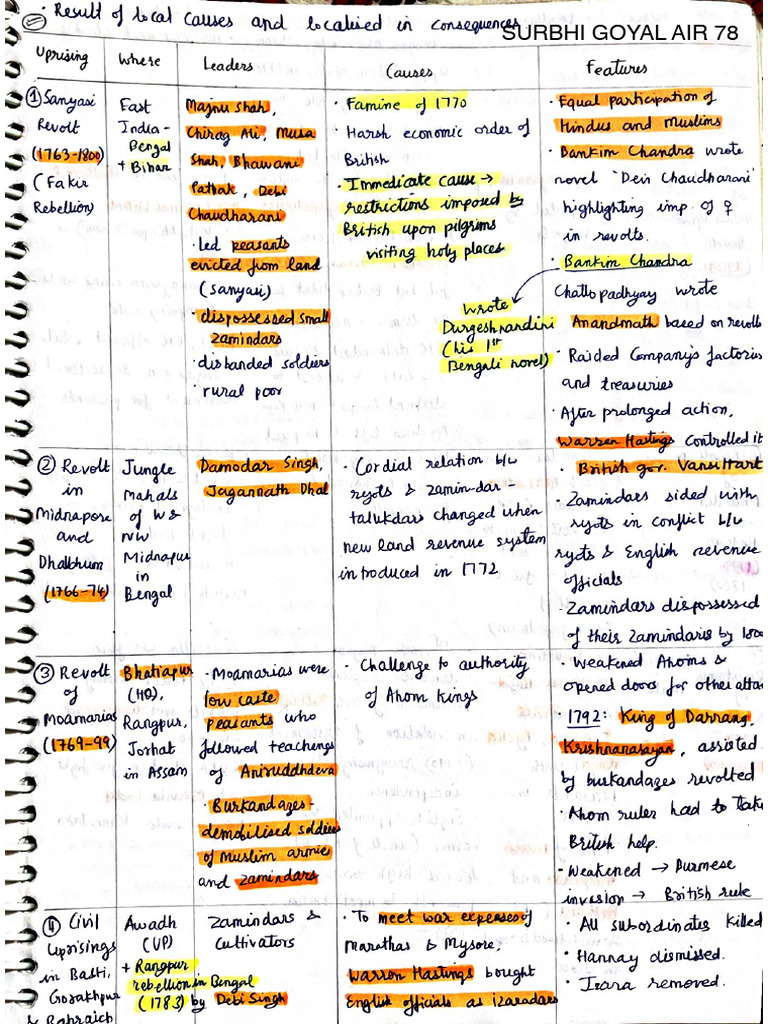 • Result of local causes and localised in consequences
SURBHI GOYAL AIR 78
Uprising
Where
Leaders
Causes
Features
① Sanyasi
Revolt
(1763-1800)
(Fakir
Rebellion)
East
India-
Bengal
+ Bihar
Majnu Shah,
Chirag Ali, Musa
Shah, Bhawani
Pathak, Debi
Chaudharani
• Led peasants
evicted from land
(sanyasi)
• dispossessed small
zamindars
• disbanded soldiers
• rural poor
• Famine of 1770
• Harsh economic order of
British
• Immedicate cause →
restrictions imposed by
British upon pilgrims
visiting holy places
Wrote
Durgeshnandini
(his 1st
Bengali novel)
• Equal participation of
Hindus and Muslims
• Bankim Chandra wrote
novel 'Devi Chaudharani'
highlighting imp. of ♀
in revolts.
• Bankim Chandra
Chattopadhyay wrote
Anandmath based on revolt
• Raided Company's factories
and treasuries
• After prolonged action,
Warren Hastings controlled it
② Revolt
in
Midnapore
and
Dhalbhum
(1766-74)
Jungle
Mahals
of W &
NW
Midnapur
in
Bengal
Damodar Singh,
Jagannath Dhal
• Cordial relation b/w
ryots & zamindar-
talukdars changed when
new land revenue system
introduced in 1772
• British gov. Vansittart
• Zamindars sided with
ryots in conflict b/w
ryots & English revenue
officials
• Zamindars dispossessed
of their zamindaris by 1800
③ Revolt
of
Moamarias
(1769-99)
Bhatiapur
(HQ),
Rangpur,
Jorhat
in Assam
• Moamarias were
low caste
peasants who
followed teachings
of Aniruddhdeva
• Burkandazes-
demobilised soldiers
of Muslim armies
and zamindars
• Challenge to authority
of Ahom kings
• Weakened Ahoms &
opened doors for other atta
• 1792: King of Darrang,
Krishnanarayan, assisted
by burkandazes revolted
• Ahom ruler had to take
British help.
• Weakened → Burmese
invasion → British rule
④ Civil
Uprisings
in Basti,
Gorakhpur
& Bahraich
Awadh
(UP)
+ Rangpur
rebellion in Bengal
(1783) by Debi Singh
Zamindars &
Cultivators
• To meet war expenses of
Marathas & Mysore,
Warren Hastings bought
English officials as izaradars
• All subordinates killed
• Hannay dismissed.
• Izara removed.